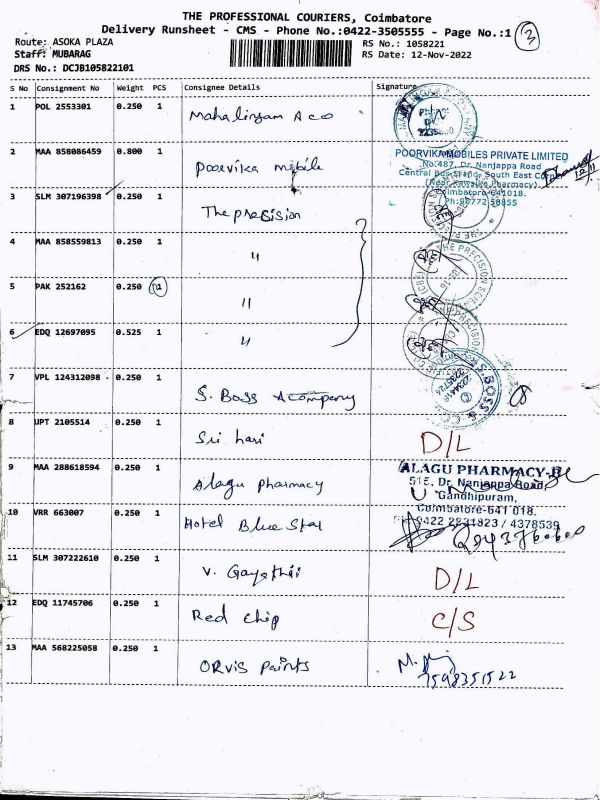 THE PROFESSIONAL COURIERS, Coimbatore
Delivery Runsheet - CMS - Phone No.:0422-3505555 - Page No.:1 3
Route: ASOKA PLAZA RS No.: 1058221
Staff: MUBARAG RS Date: 12-Nov-2022
DRS No.: DCJB105822101
S No Consignment No Weight PCS Consignee Details Signature
1 POL 2553301 0.250 1 Mahalingam A co
2 MAA 858086459 0.800 1 Poorvika mobile
POORVIKA MOBILES PRIVATE LIMITED
No:487, Dr. Nanjappa Road
Central Bus Stand, South East Corp
(Near Kawsika Pharmacy)
Coimbatore-641018.
Ph:98772 50855
12/11
3 SLM 307196398 0.250 1 The precision
4 MAA 858559813 0.250 1 "
THE PRECISION SCIEN
5 PAK 252162 0.250 1 "
6 EDQ 12697095 0.525 1 "
7 VPL 124312098 0.250 1 S. Boss A company
S. BOSS & CO
8 UPT 2105514 0.250 1 Sri hari D/L
9 MAA 288618594 0.250 1 Alagu Pharmacy
ALAGU PHARMACY-II
515, Dr. Nanjappa Road,
Gandhipuram,
Coimbatore-641 018.
0422 2231823 / 4378539
10 VRR 663007 0.250 1 Hotel Blue Star
11 SLM 307222610 0.250 1 V. Gayathri D/L
12 EDQ 11745706 0.250 1 Red chip C/S
13 MAA 568225058 0.250 1 ORVIS Paints
7598351522